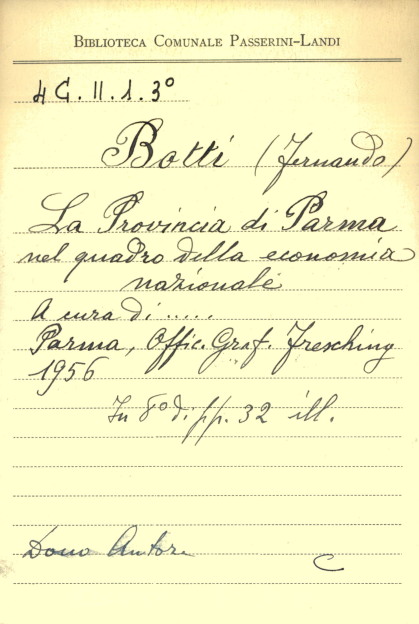 BIBLIOTECA COMUNALE PASSERINI-LANDI
4 G. II. 1. 3°
Botti (Fernando)
La Provincia di Parma
nel quadro della economia
nazionale
A cura di .....
Parma, Offic. Graf. Fresching
1956
In 8° di pp. 32 ill.
Dono Autore
C